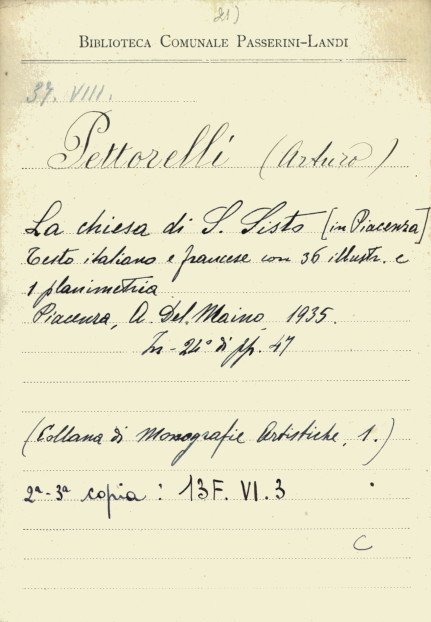 21)
BIBLIOTECA COMUNALE PASSERINI-LANDI
37. VIII.
Pettorelli (Arturo)
La chiesa di S. Sisto [in Piacenza]
Testo italiano e francese con 36 illustr. e
1 planimetria
Piacenza, A. Del Maino, 1935.
In-24° di pp. 47
(Collana di Monografie Artistiche, 1.)
2ª-3ª copia : 13F. VI. 3
C